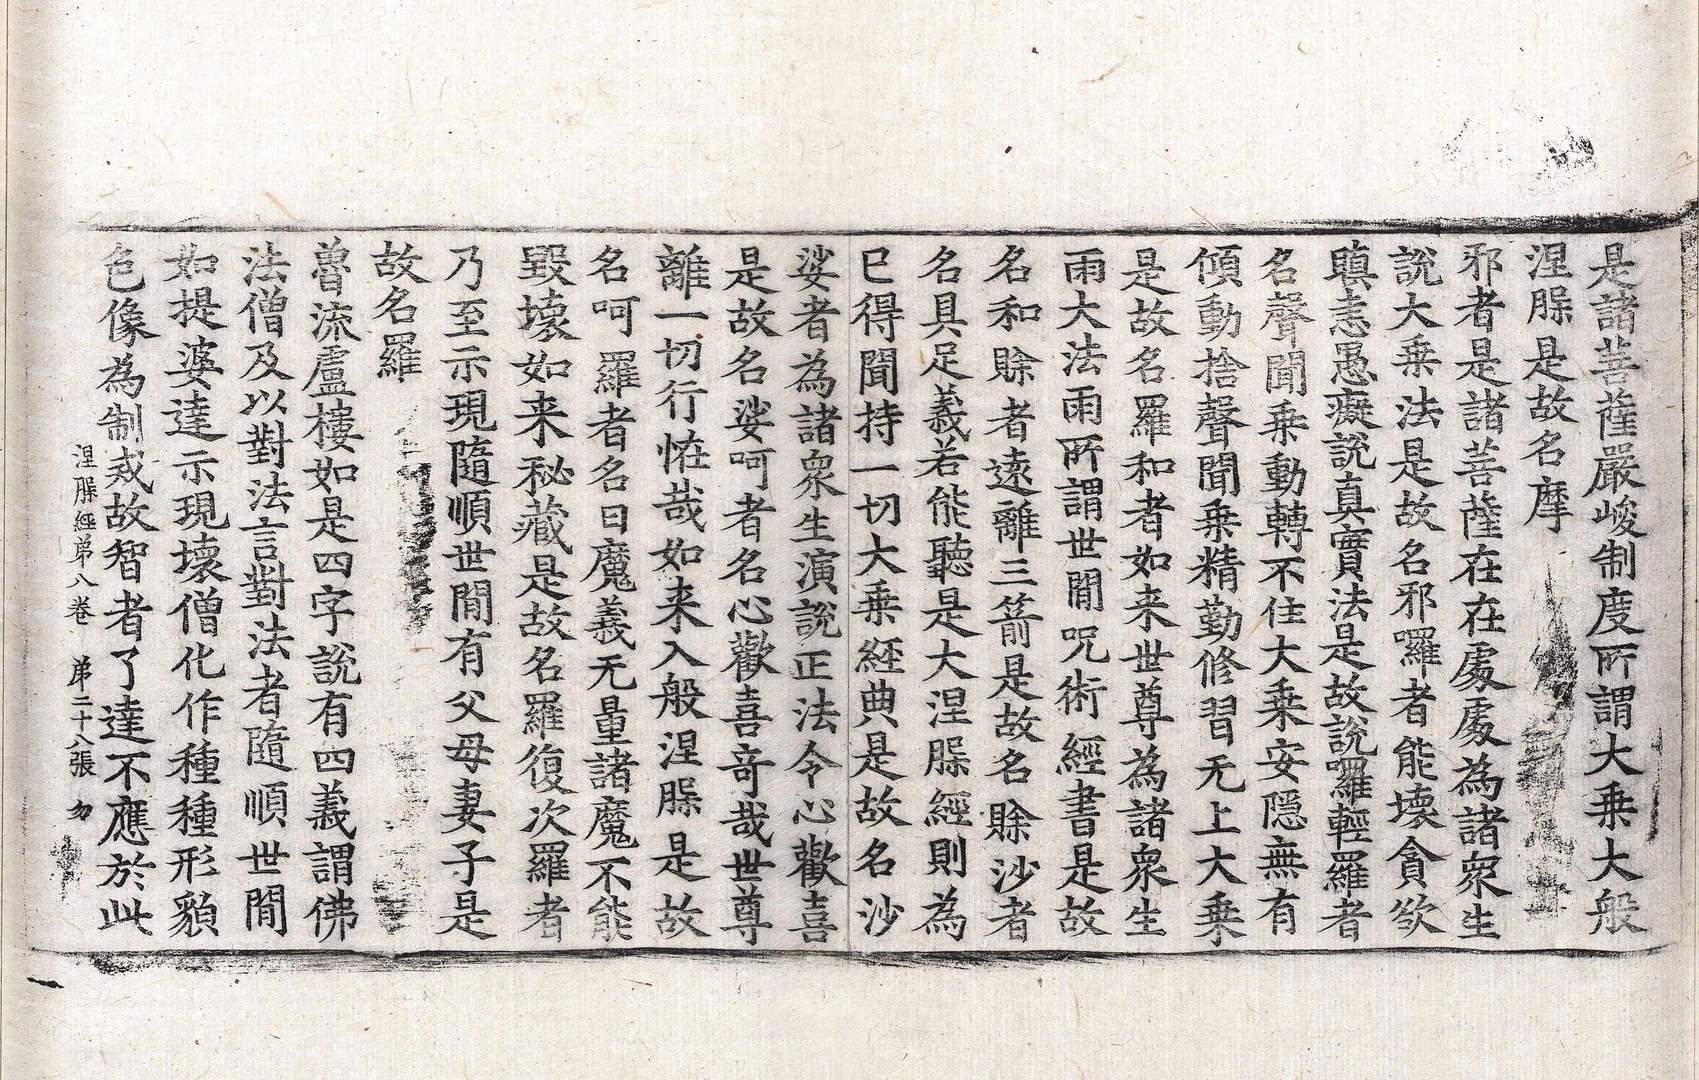 是諸菩薩嚴峻制度所謂大乗大般
涅槃是故名摩
邪者是諸菩薩在在處處為諸衆生
說大乗法是故名邪囉者能壞貪欲
瞋恚愚癡說真實法是故說囉輕羅者
名聲聞乗動轉不住大乗安隠無有
傾動捨聲聞乗精勤修習无上大乗
是故名羅和者如来世尊為諸衆生
雨大法雨所謂世閒呪術經書是故
名和賒者逺離三箭是故名賒沙者
名具足義若能聽是大涅槃經則為
巳得聞持一切大乗經典是故名沙
娑者為諸衆生演說正法令心歡喜
是故名娑呵者名心歡喜竒哉世尊
離一切行恠哉如来入般涅槃是故
名呵羅者名曰魔義无量諸魔不能
毀壞如来秘藏是故名羅復次羅者
乃至示現隨順世閒有父母妻子是
故名羅
魯流盧樓如是四字說有四義謂佛
法僧及以對法言對法者隨順世閒
如提婆達示現壞僧化作種種形貌
色像為制戒故智者了達不應於此
涅槃經苐八卷　苐二十八張　勿